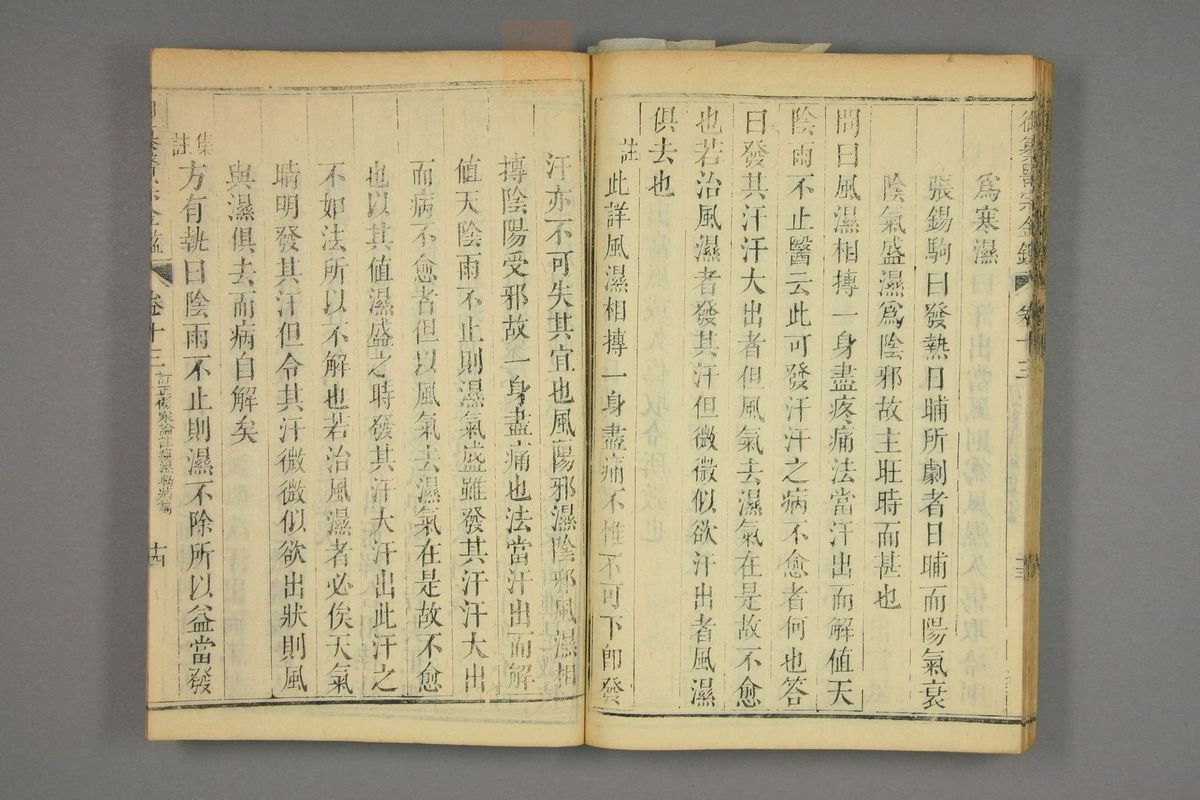 御纂醫宗金鑑 卷十三 十三
為寒濕
張錫駒曰發熱日晡所劇者日晡而陽氣衰
陰氣盛濕為陰邪故主旺時而甚也
問曰風濕相摶一身盡疼痛法當汗出而解值天
陰雨不止醫云此可發汗汗之病不愈者何也答
曰發其汗汗大出者但風氣去濕氣在是故不愈
也若治風濕者發其汗但微微似欲汗出者風濕
俱去也
註此詳風濕相摶一身盡痛不惟不可下卽發
汗亦不可失其宜也風陽邪濕陰邪風濕相
摶陰陽受邪故一身盡痛也法當汗出而解
值天陰雨不止則濕氣盛雖發其汗汗大出
而病不愈者但以風氣去濕氣在是故不愈
也以其值濕盛之時發其汗大汗出此汗之
不如法所以不解也若治風濕者必俟天氣
晴明發其汗但令其汗微微似欲出狀則風
與濕俱去而病自解矣
集註方有執曰陰雨不止則濕不除所以益當發
醫宗金鑑 卷十三 訂正傷寒論註 十四